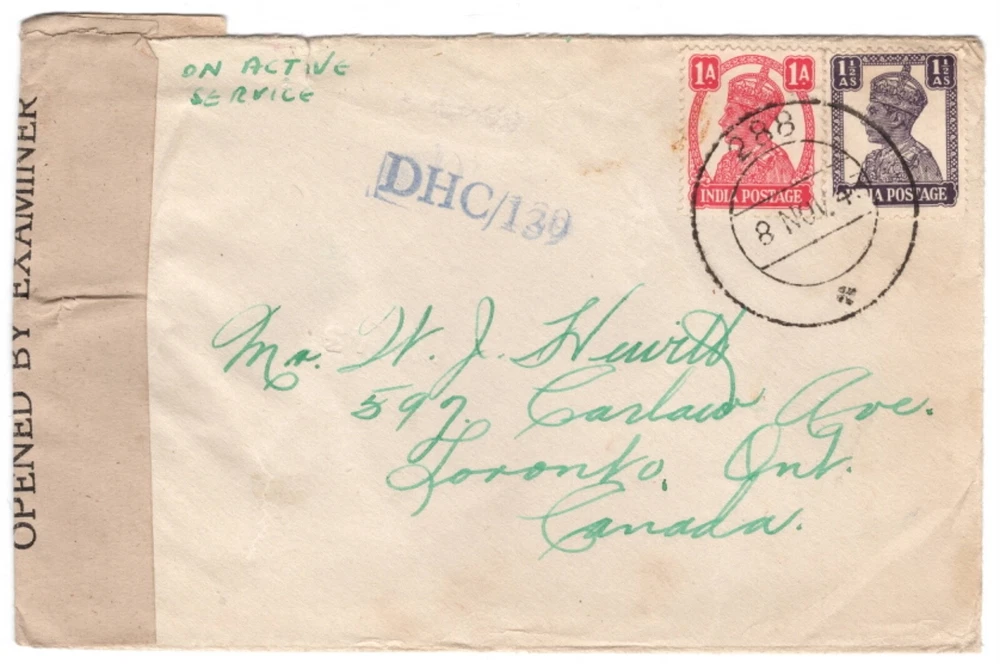 OPENED BY EXAMINER
ON ACTIVE
SERVICE
1A 1A
INDIA POSTAGE
1½ AS 1½ AS
INDIA POSTAGE
288
8 NOV. 4
DHC/139
Mr. W. J. Hewitt
597 Carlaw Ave.
Toronto, Ont.
Canada.